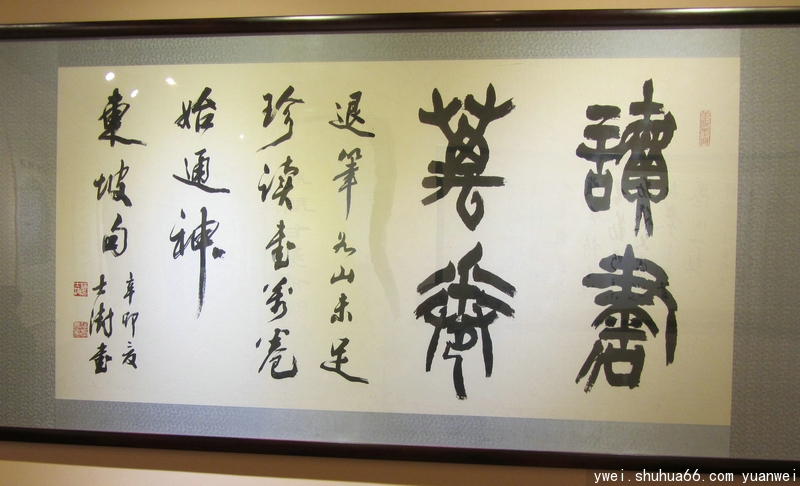 讀書
萬卷
退筆如山未足
珍读书万卷
始通神
東坡句
辛卯夏
士澍书
ywei.shuhua66.com yuanwei